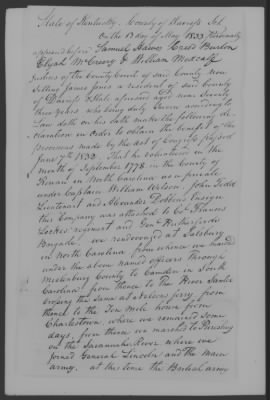 State of Kentucky, County of Daviess Sct.
On the 13 day of May 1833, Personally
appeared before Samuel Haws Creed Burton
Elijah McCreery & William Metcalf
Justices of the County Court of said County now
Sitting James Jones a resident of said County
of Daviess & State aforesaid aged Seventy
three years who being duly Sworn according to
Law doth on his oath make the following de-
claration in Order to obtain the benefit of the
provisions made by the act of Congress passed
June 7th 1832. That he volunteered in the
month of September 1778 in the County of
Rowan in North Carolina as a private
under Captain William Wilson, John Todd
Lieutenant and Alexander Dobbins Ensign
this Company was attached to Col. Francis
Lockes regiment and Gen. Rutherfords
Brigade, we rendezvoused at Salsbury
in North Carolina from whence we marched
under the above named officers through
Mclenburg County to Camden in South
Carolina from thence to the River Santee
crossing the Same at Nelsons ferry from
thence to the Ten Mile house from
Charlestown, where we remained some
days, from thence we marched to Purisburg
on the Savannah River where we
joined General Lincoln and the Main
army. at this time the British army